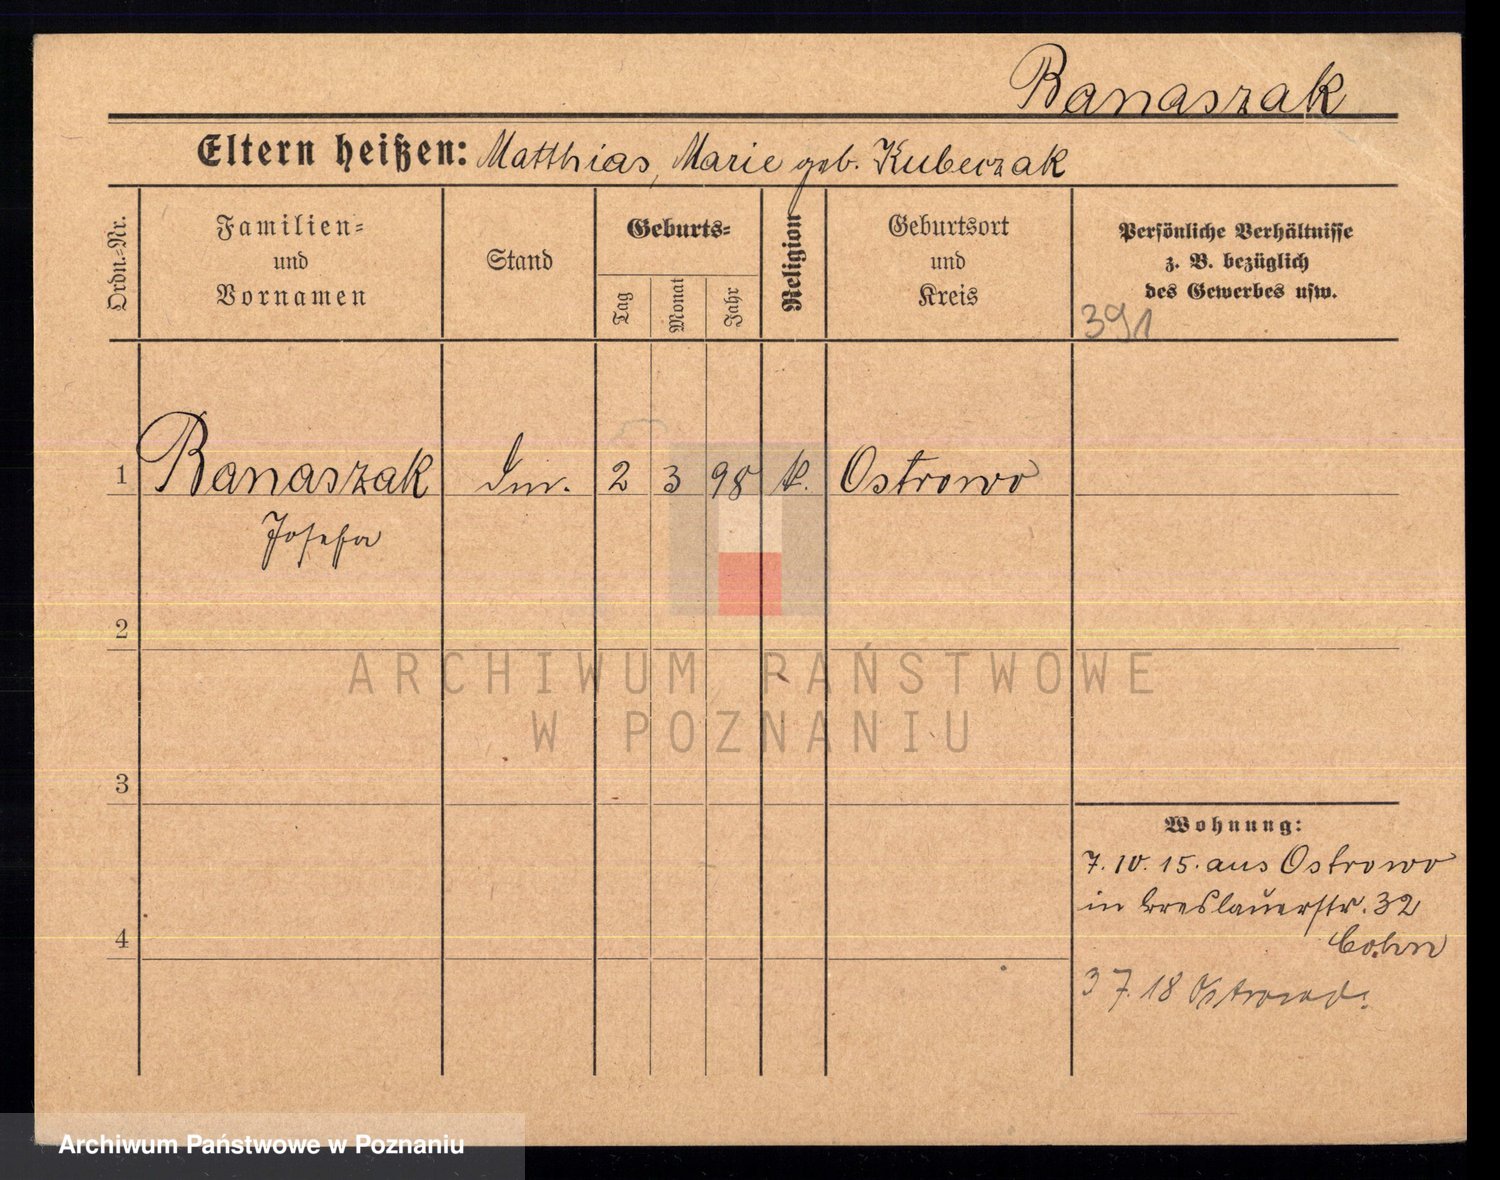 Banaszak
Eltern heißen: Matthias, Marie geb. Kubeczak
Ordn.-Nr.
Familien- und Vornamen
Stand
Geburts-
Tag
Monat
Jahr
Religion
Geburtsort und Kreis
Persönliche Verhältnisse
z. B. bezüglich
des Gewerbes usw.
391
1 Banaszak 2 3 98 k. Ostrowo
Josefa
2
3
4
Wohnung:
7.10.15. aus Ostrowo
in Breslauerstr. 32
Cohn
3 7. 18
ARCHIWUM PAŃSTWOWE
W POZNANIU
Archiwum Państwowe w Poznaniu